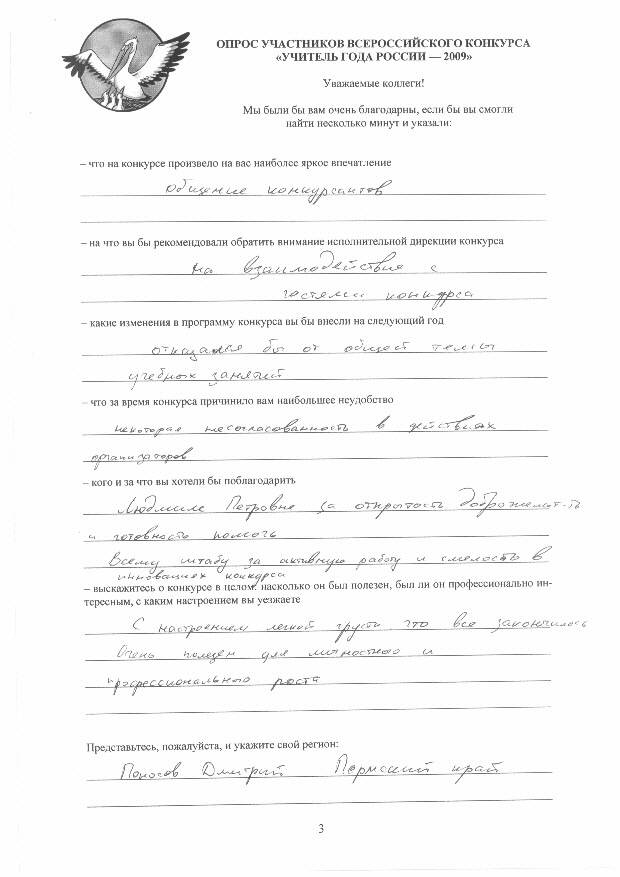 ОПРОС УЧАСТНИКОВ ВСЕРОССИЙСКОГО КОНКУРСА
«УЧИТЕЛЬ ГОДА РОССИИ — 2009»
Уважаемые коллеги!
Мы были бы вам очень благодарны, если бы вы смогли
найти несколько минут и указали:
– что на конкурсе произвело на вас наиболее яркое впечатление
Общение конкурсантов
– на что вы бы рекомендовали обратить внимание исполнительной дирекции конкурса
на взаимодействия с
гостями конкурса
– какие изменения в программу конкурса вы бы внесли на следующий год
отказался бы от общей темы
учебных занятий
– что за время конкурса причинило вам наибольшее неудобство
некоторая несогласованность в действиях
организаторов
– кого и за что вы хотели бы поблагодарить
Людмиле Петровне за открытость доброжелат-ть
и готовность помочь
Всему штабу за активную работу и смелость в
инновациях конкурса
– выскажитесь о конкурсе в целом: насколько он был полезен, был ли он профессионально ин-
тересным, с каким настроением вы уезжаете
С настроением легкой грусти что все закончилось
Очень полезен для личностного и
профессионального роста
Представьтесь, пожалуйста, и укажите свой регион:
Поносов Дмитрий Пермский край
3